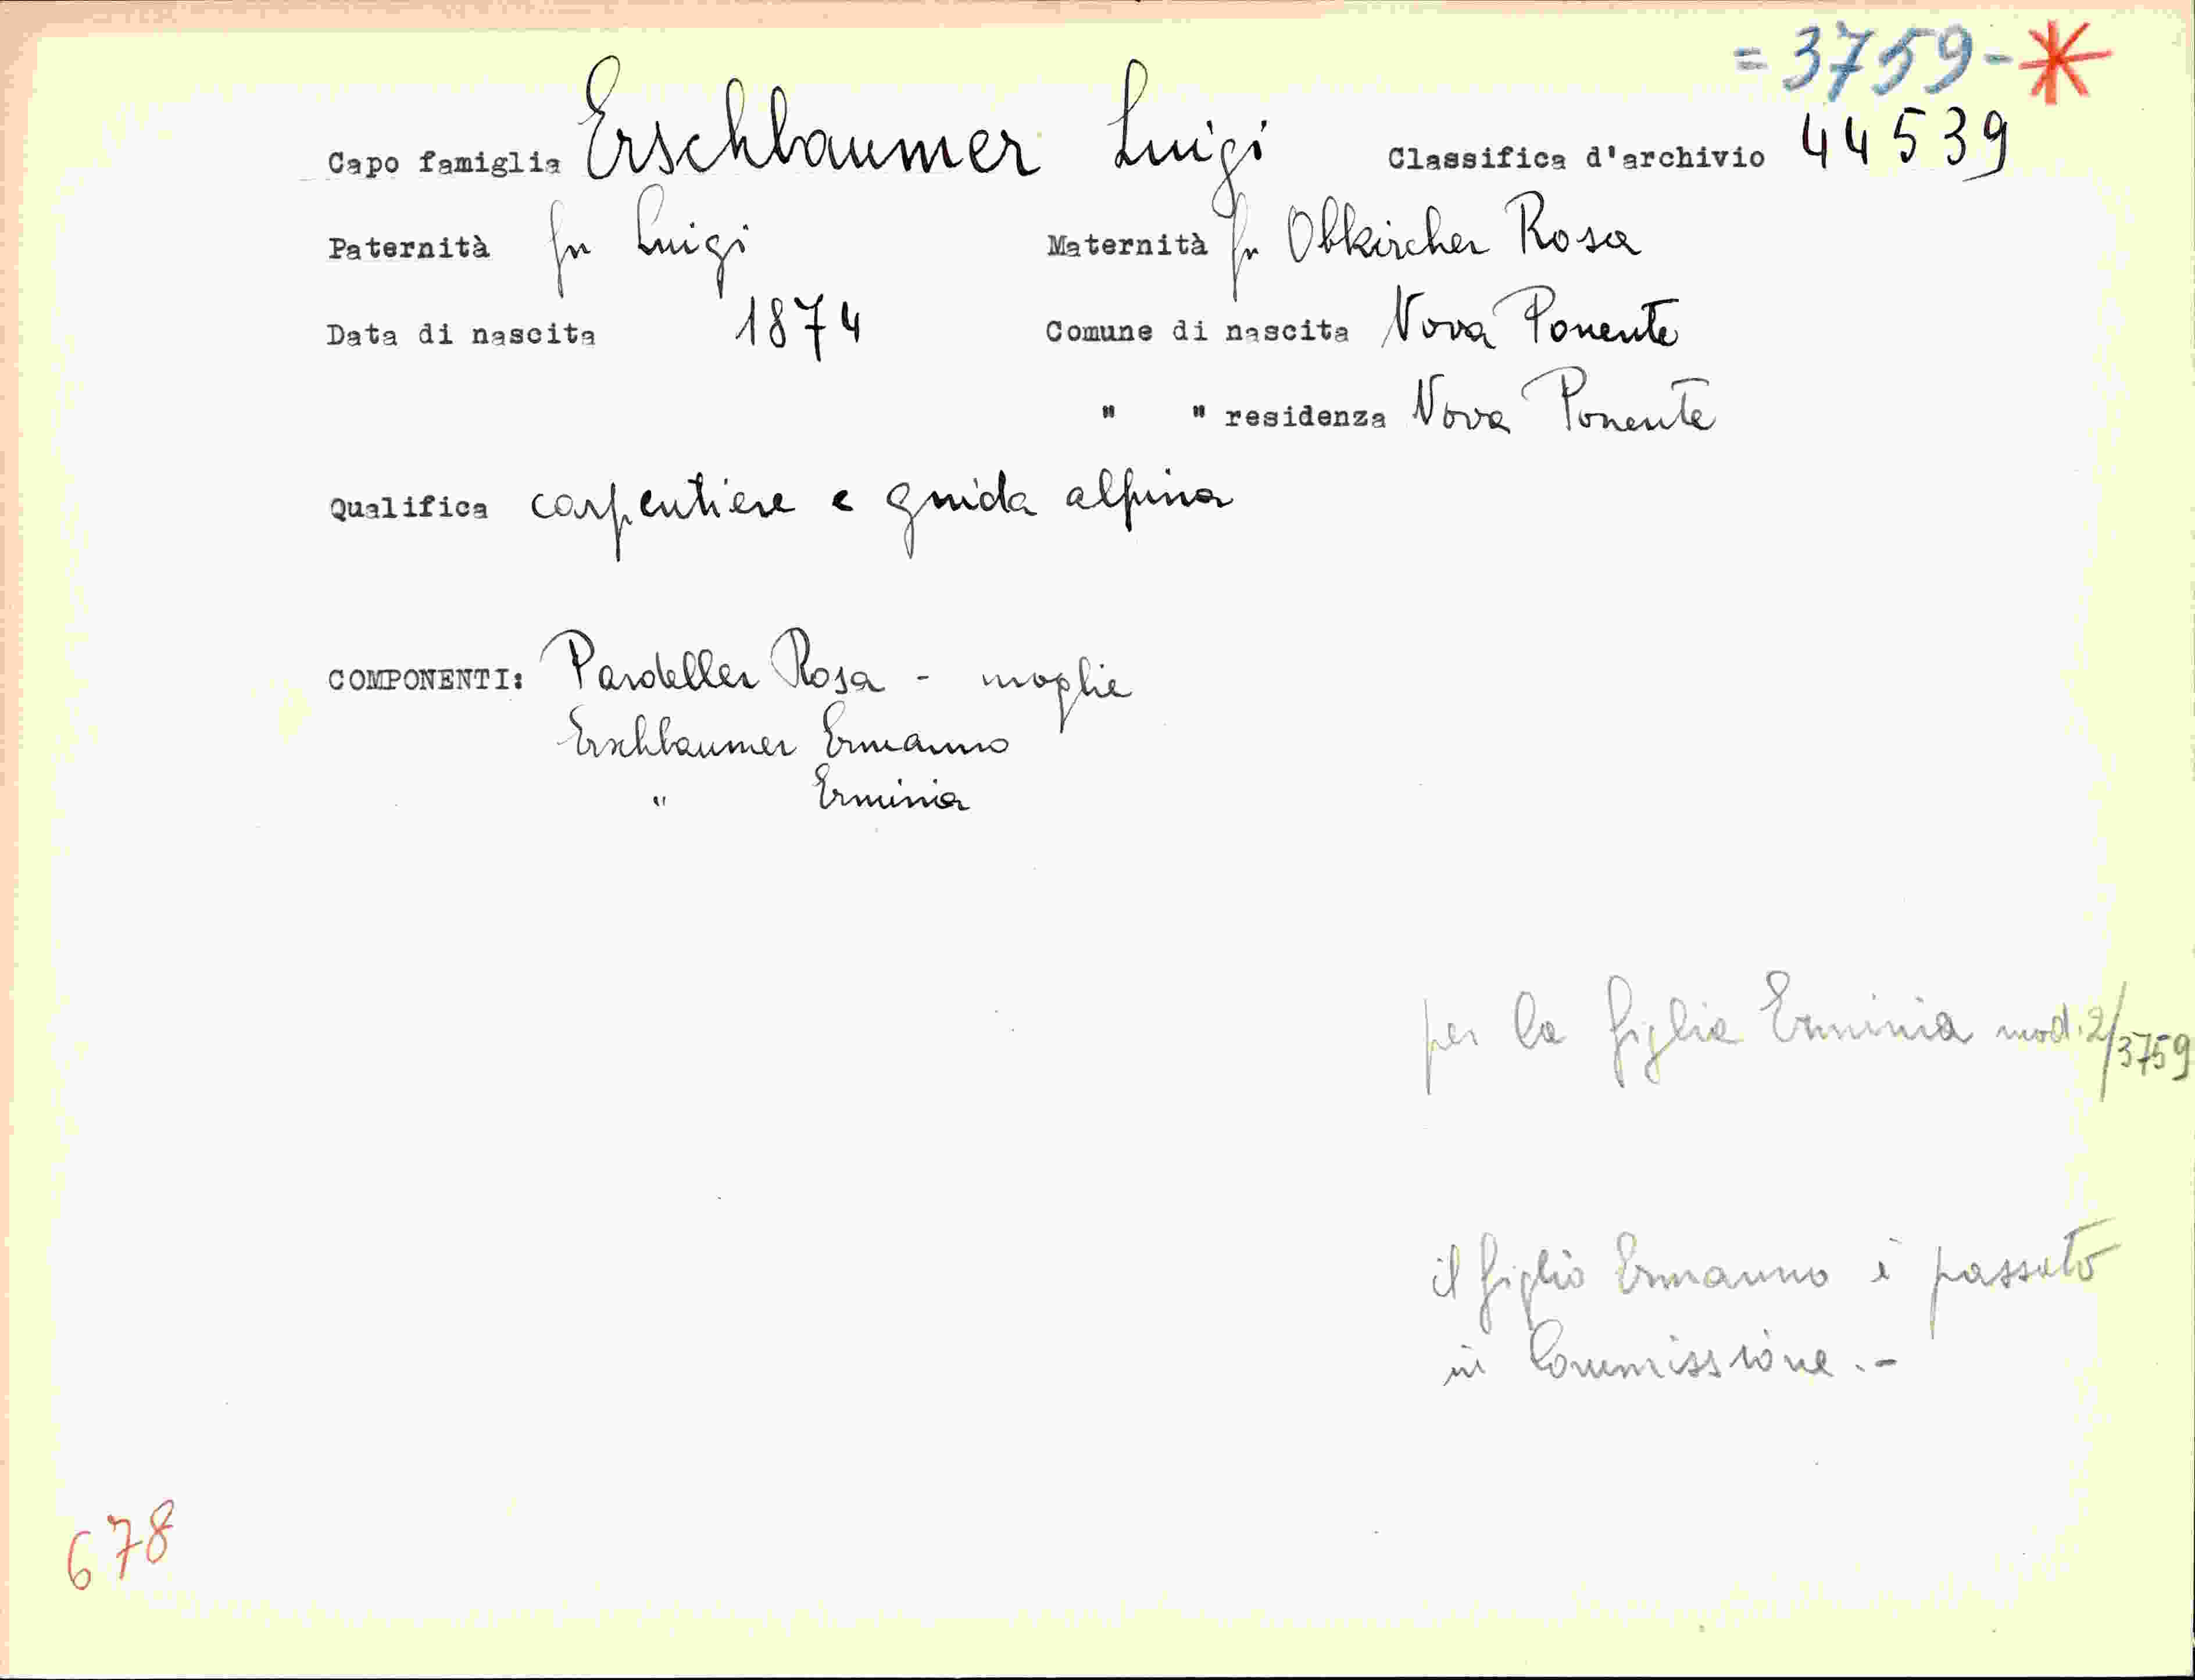 = 3759 - *
Capo famiglia Erschbaumer Luigi Classifica d'archivio 44539
Paternità fu Luigi Maternità fu Obkircher Rosa
Data di nascita 1874 Comune di nascita Nova Ponente
" " residenza Nova Ponente
Qualifica carpentiere e guida alpina
COMPONENTI: Pardeller Rosa - moglie
Erschbaumer Ermanno
" Erminia
per la figlia Erminia mod. 2/3759
il figlio Ermanno è passato
in Commissione.-
678